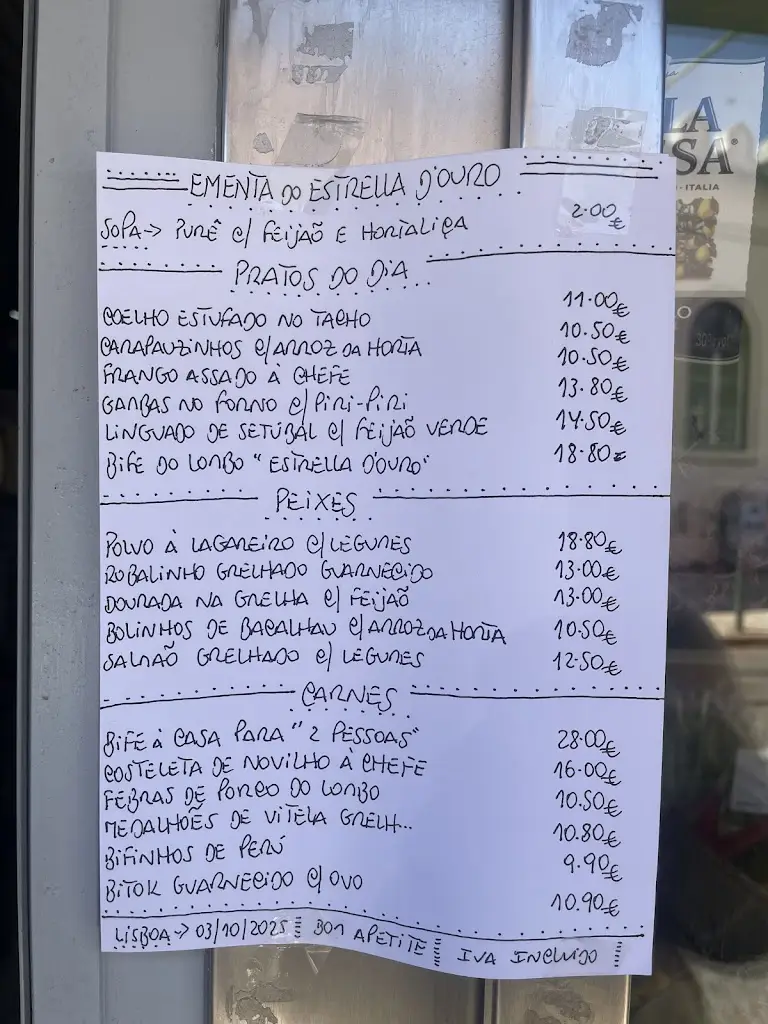 EMENTA DO ESTRELLA D'OURO
SOPA → PURÊ C/ FEIJÃO E HORTALIÇA 2.00€
PRATOS DO DIA
COELHO ESTUFADO NO TACHO 11.00€
CARAPAUZINHOS C/ARROZ DA HORTA 10.50€
FRANGO ASSADO À CHEFE 10.50€
GAMBAS NO FORNO C/ PIRI-PIRI 13.80€
LINGUADO DE SETÚBAL C/ FEIJÃO VERDE 14.50€
BIFE DO LOMBO "ESTRELLA D'OURO" 18.80€
PEIXES
POLVO À LAGAREIRO C/ LEGUMES 18.80€
ROBALINHO GRELHADO GUARNECIDO 13.00€
DOURADA NA GRELHA C/ FEIJÃO 13.00€
BOLINHOS DE BACALHAU C/ARROZ DA HORTA 10.50€
SALMÃO GRELHADO C/ LEGUMES 12.50€
CARNES
BIFE À CASA PARA "2 PESSOAS" 28.00€
COSTELETA DE NOVILHO À CHEFE 16.00€
FEBRAS DE PORCO DO LOMBO 10.50€
MEDALHÕES DE VITELA GRELH... 10.80€
BIFINHOS DE PERÚ 9.90€
BITOK GUARNECIDO C/ OVO 10.90€
LISBOA → 03/10/2025 BOM APETITE IVA INCLUIDO
LA
SA
ITALIA